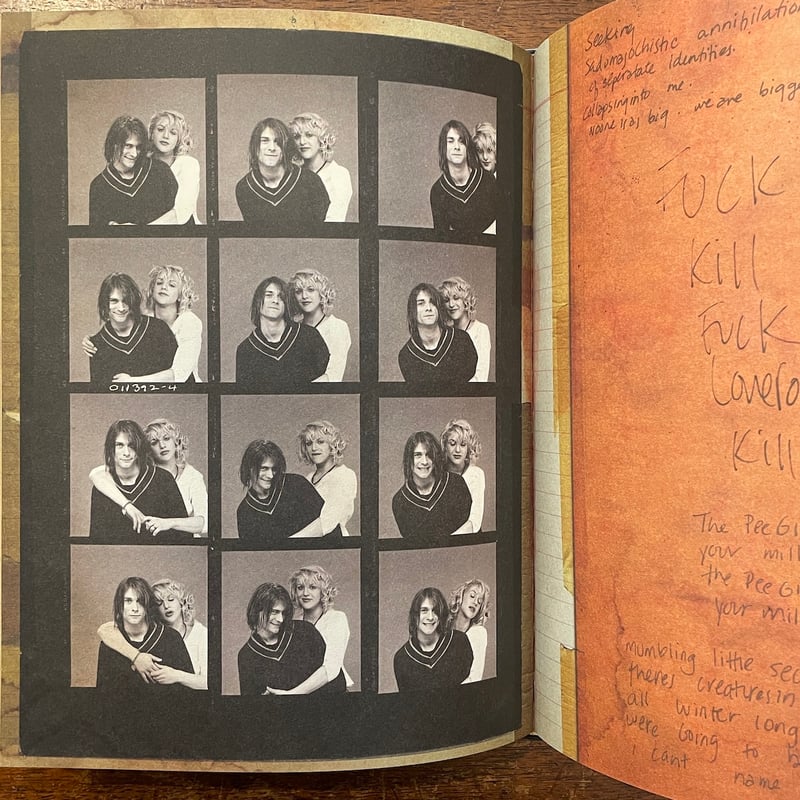 011392-4
Seeking
Sadomasochistic annihilation
of seperate identities.
Collapsing into me.
Noone is as big. we are bigge
FUCK
Kill
FUCK
Lovero
Kill
The Pee Gi
your mil
the Pee Gi
your mil
mumbling little sec
theres creatures in
all winter long
were Going to b
i cant
name